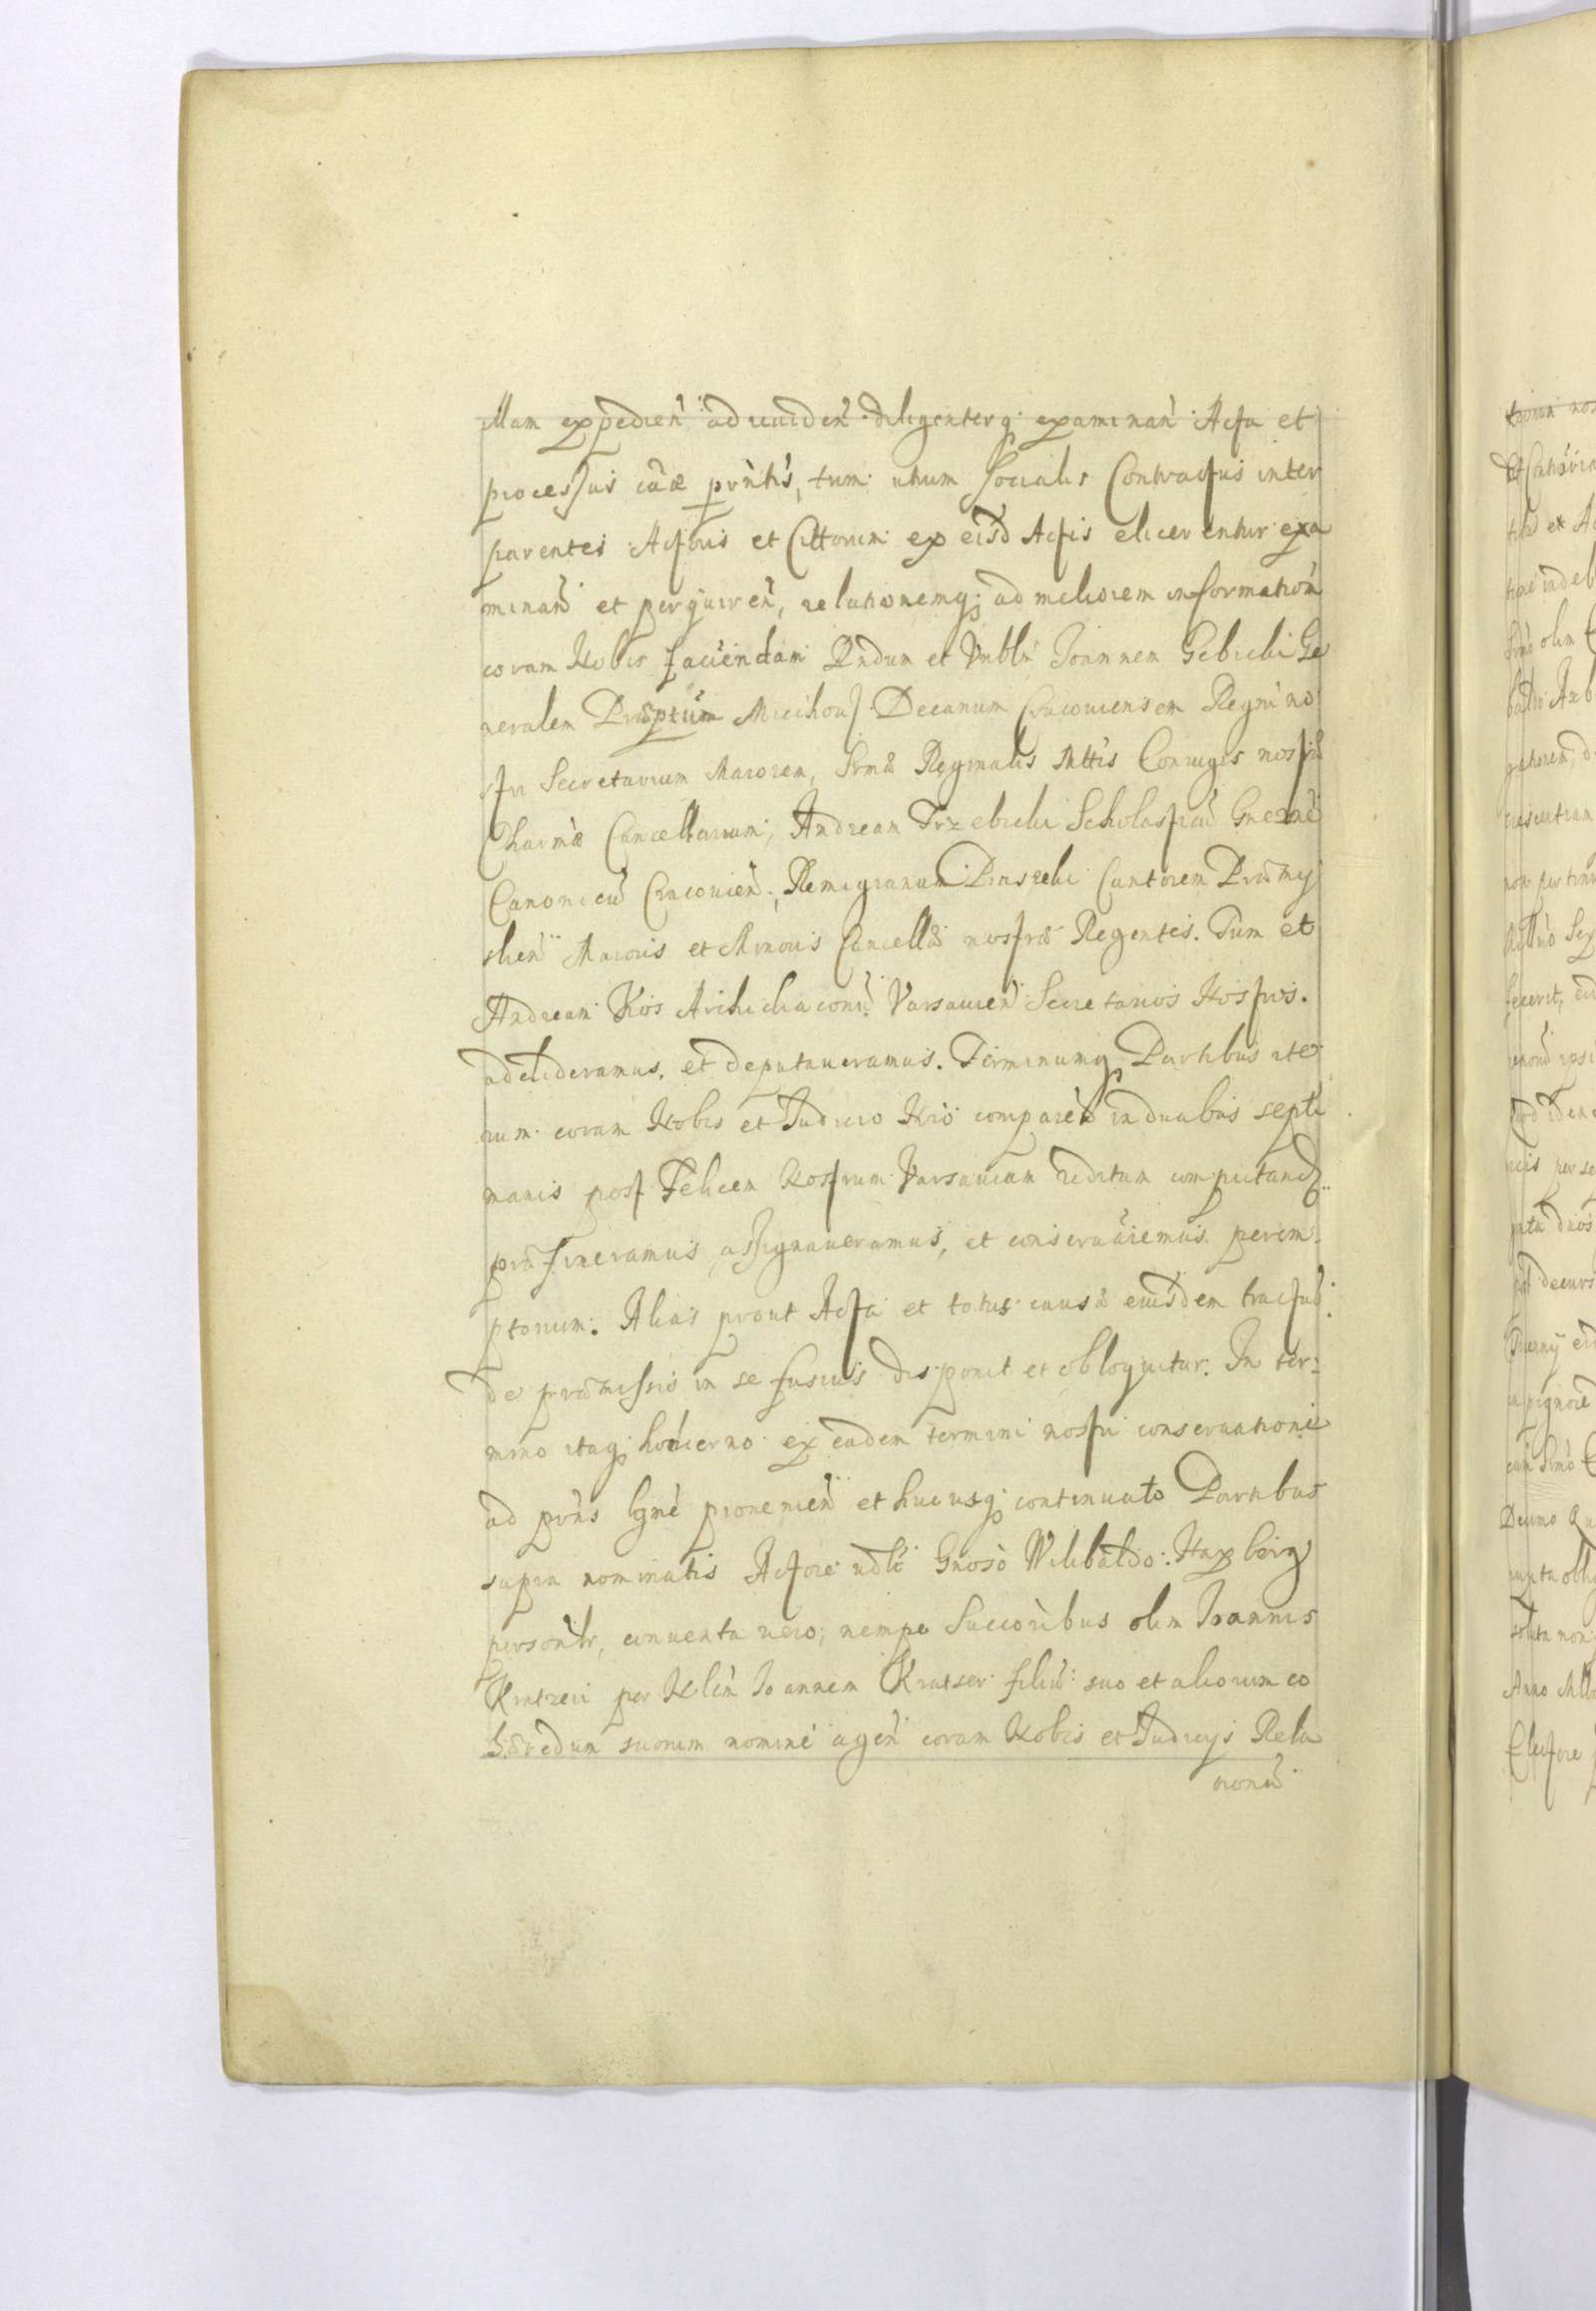 illam expedien̄ ad reuiden̄ diligenterq; examinan̄ Acta et
processus cāæ prn̄tis, tum utrum Socialis Contractus inter
parentes Actoris et Cittorum ex eisd Actis eliceretur exa
minan̄ et perquiren̄, relationemq; ad meliorem information̄
coram Nobis faciendam Rndum et Vrblm Joannem Gębicki Ge
neralem Præptum Miechou. Decanum Cracouiensem Regni no
stri Secretarium Maiorem, Srmæ Reginalis Mttis Coniugis nostræ
Charmæ Cancellarium, Andream Trzebicki Scholasticū Gneznē
Canonicū Cracouien̄, Remigianum Piasecki Cantorem Præmy
slien̄ Maioris et Minoris Cancellæ nostræ Regentes. Tum et
Andream Kos Archidiaconū Varsauien̄ Secretarios Nostros.
addideramus, et deputaueramus. Terminumq; Partibus ite
rum coram Nobis et Judicio Nrō comparēd in duabus septi
manis post Felicem Nostrum Varsauiam reditum computand
præfixeramus, assignaueramus, et conseruaremus perem
ptorium. Alias prout Acta et totus causæ eiusdem tractus
de præmissis in se fusius disponit et obloquitur. In ter:
mino itaq; hodierno ex eadem termini nostri conseruatione
ad prn̄s lgmē prouenien̄ et hucusq; continuato Partibus
supra nominatis Actore ndlē Gnosō Wilibaldo Haxberg
personlr, conuenta uero, nempe Succoribus olim Joannis
Kratzeri per Nlēm Joannem Kratzer filiū suo et aliorum co
hæredum suorum nomine agen̄ coram Nobis et Judicijs Rela
tionū